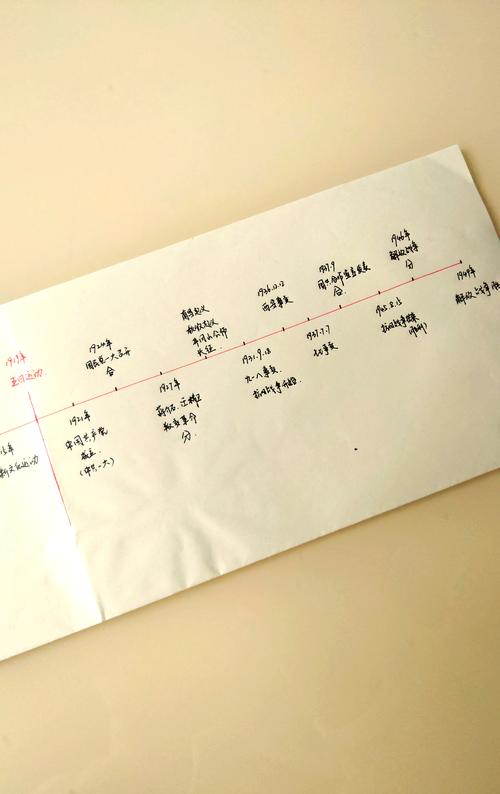 1919年
五四运动.
新文化运动
1921年
中国共产党
成立.
(中共一大)
1924年
国民党一大召开
合
1927年
蒋介石、汪精卫
叛变革命
分.
南昌起义
秋收起义
井冈山会师
长征.
1931.9.18
九一八事变
抗日战争开始.
1936.12.12
西安事变
1937.7.7
七七事变
1937.9
合.
1945.8.15
抗日战争结束
(胜利)
1946年
解放战争
分
1949年
解放战争